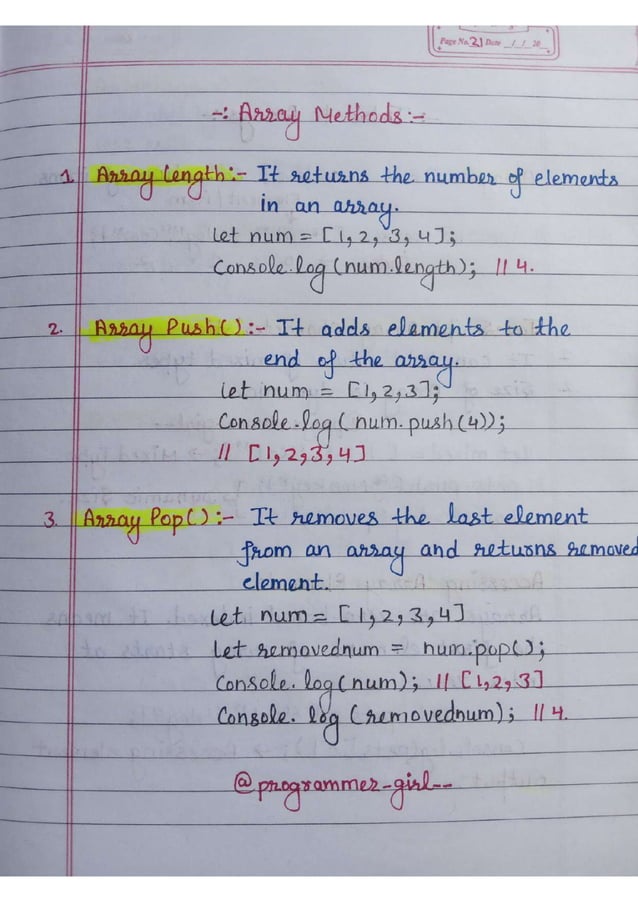 Page No. 21 Date _/_/ 20_
-: Array Methods :-
1. Array Length :- It returns the number of elements
in an array.
Let num = [1, 2, 3, 4];
Console.log (num.length); // 4.
2. Array Push() :- It adds elements to the
end of the array.
Let num = [1, 2, 3];
Console.log ( num. push (4));
// [1, 2, 3, 4]
3. Array Pop() :- It removes the last element
from an array and returns removed
element.
Let num = [1, 2, 3, 4]
Let removednum = num.pop();
Console. log (num); // [1, 2, 3]
Console. log (removednum); // 4.
@programmer_girl__